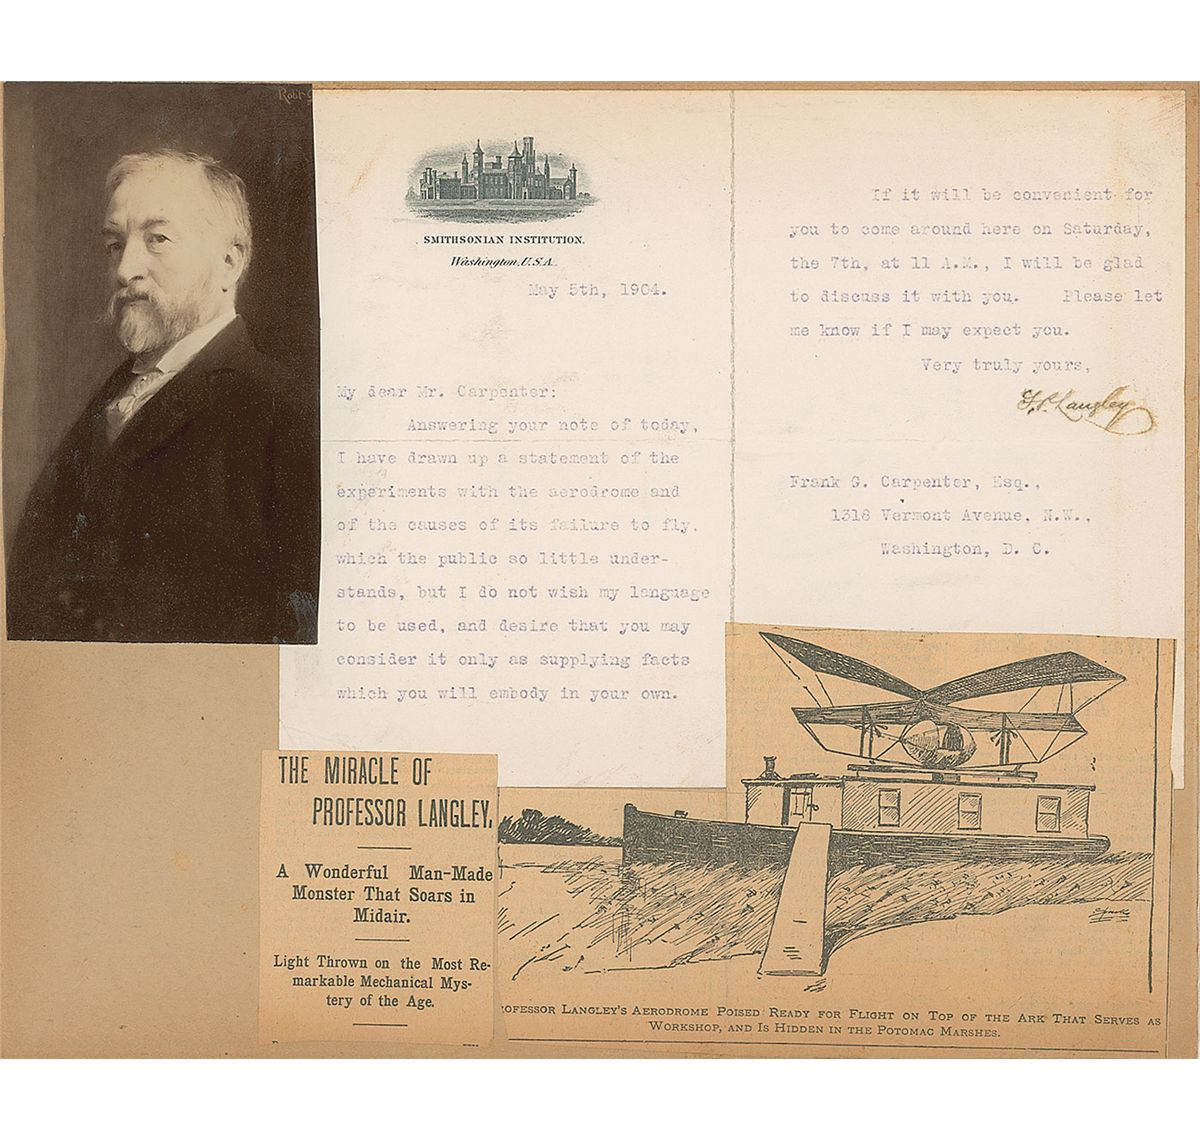 Robt
SMITHSONIAN INSTITUTION.
Washington, U.S.A.
May 5th, 1904.
My dear Mr. Carpenter:
Answering your note of today,
I have drawn up a statement of the
experiments with the aerodrome and
of the causes of its failure to fly,
which the public so little under-
stands, but I do not wish my language
to be used, and desire that you may
consider it only as supplying facts
which you will embody in your own.
If it will be convenient for
you to come around here on Saturday,
the 7th, at 11 A.M., I will be glad
to discuss it with you. Please let
me know if I may expect you.
Very truly yours,
S. P. Langley
Frank G. Carpenter, Esq.,
1318 Vermont Avenue, N.W.,
Washington, D. C.
THE MIRACLE OF
PROFESSOR LANGLEY.
A Wonderful Man-Made
Monster That Soars in
Midair.
Light Thrown on the Most Re-
markable Mechanical Mys-
tery of the Age.
ROFESSOR LANGLEY'S AERODROME POISED READY FOR FLIGHT ON TOP OF THE ARK THAT SERVES AS
WORKSHOP, AND IS HIDDEN IN THE POTOMAC MARSHES.